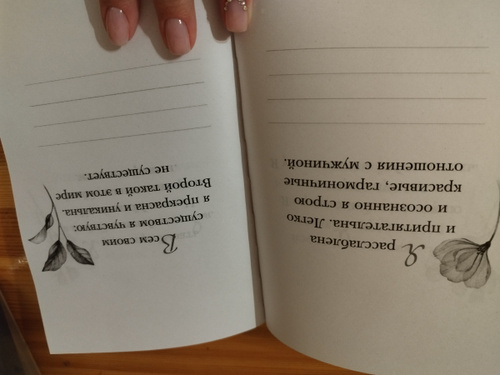 Я расслаблена
и притягательна. Легко
и осознанно я строю
красивые, гармоничные
отношения с мужчиной.
Всем своим
существом я чувствую:
я прекрасна и уникальна.
Второй такой в этом мире
не существует.